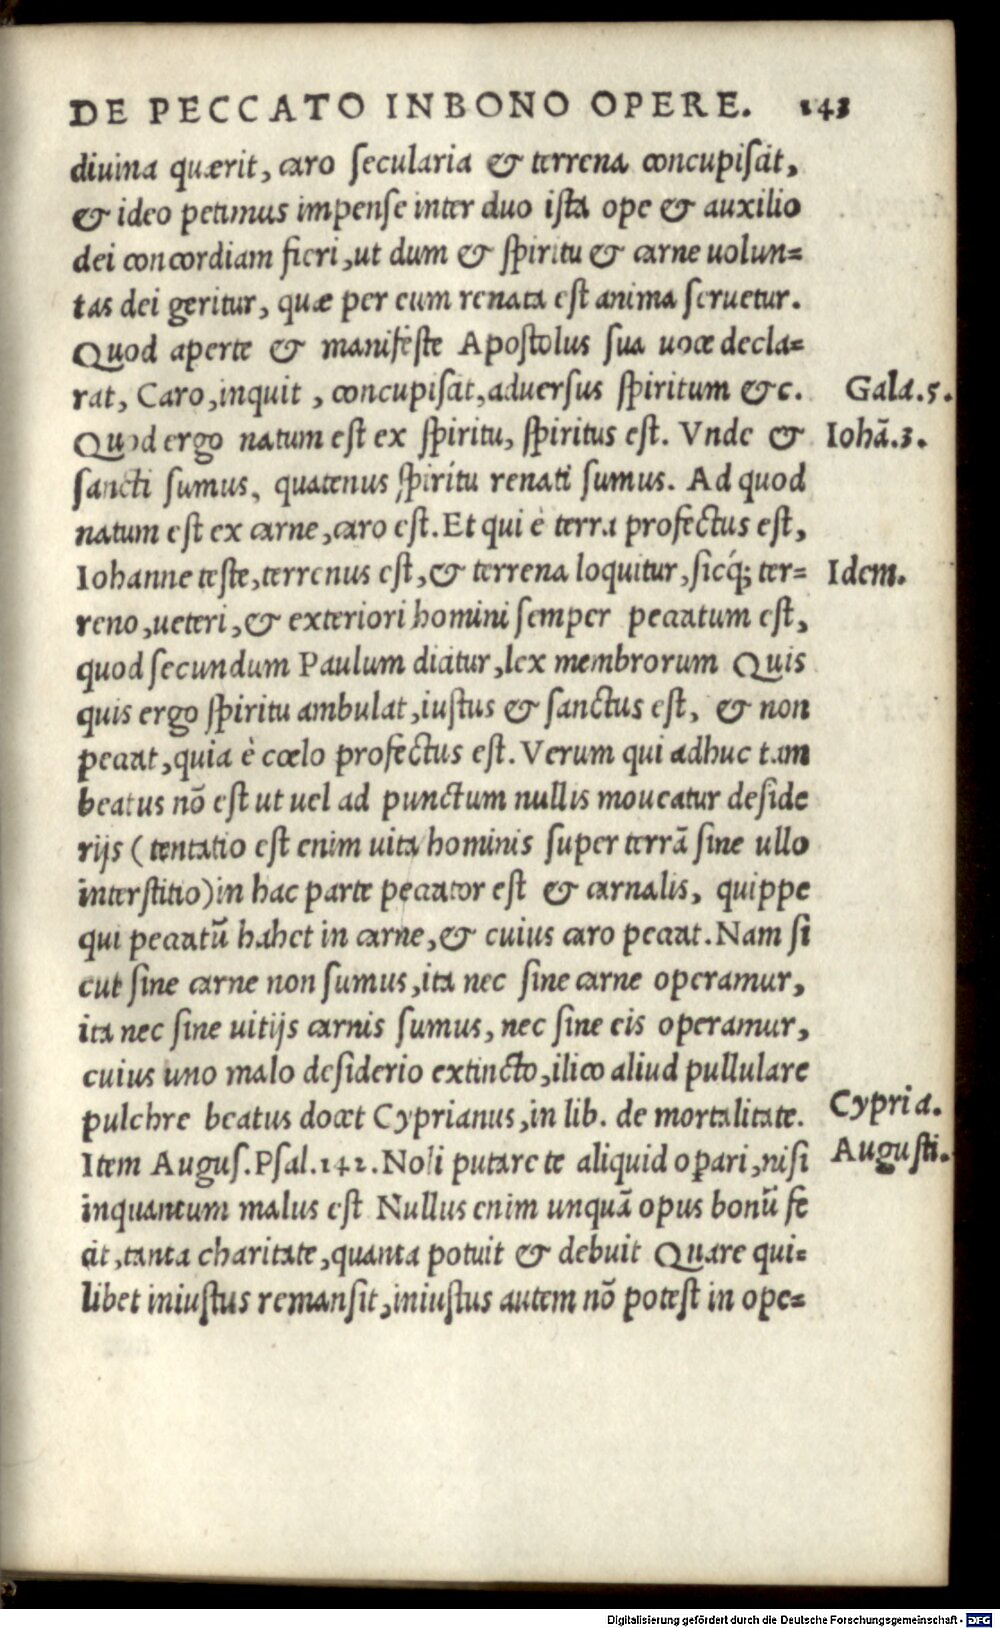 DE PECCATO INBONO OPERE. 143
diuina quærit, caro secularia & terrena concupiscit,
& ideo petimus impense inter duo ista ope & auxilio
dei concordiam fieri, ut dum & spiritu & carne uolun=
tas dei geritur, quæ per eum renata est anima seruetur.
Quod aperte & manifeste Apostolus sua uoce decla=
rat, Caro, inquit, concupiscit, aduersus spiritum &c. Gala.5.
Quod ergo natum est ex spiritu, spiritus est. Vnde & Iohā.3.
sancti sumus, quatenus spiritu renati sumus. Ad quod
natum est ex carne, caro est. Et qui è terra profectus est,
Iohanne teste, terrenus est, & terrena loquitur, sicq́; ter= Idem.
reno, ueteri, & exteriori homini semper peccatum est,
quod secundum Paulum dicitur, lex membrorum Quis
quis ergo spiritu ambulat, iustus & sanctus est, & non
peccat, quia è cœlo profectus est. Verum qui adhuc tam
beatus nō est ut uel ad punctum nullis moueatur deside
rijs (tentatio est enim uita hominis super terrā sine ullo
interstitio) in hac parte peccator est & carnalis, quippe
qui peccatū habet in carne, & cuius caro peccat. Nam si
cut sine carne non sumus, ita nec sine carne operamur,
ita nec sine uitijs carnis sumus, nec sine eis operamur,
cuius uno malo desiderio extincto, ilico aliud pullulare
pulchre beatus docet Cyprianus, in lib. de mortalitate. Cypria.
Item Augus. Psal.142. Noli putare te aliquid opari, nisi Augusti.
inquantum malus est Nullus enim unquā opus bonū fe
cit, tanta charitate, quanta potuit & debuit Quare qui=
libet iniustus remansit, iniustus autem nō potest in ope=
Digitalisierung gefördert durch die Deutsche Forschungsgemeinschaft - DFG